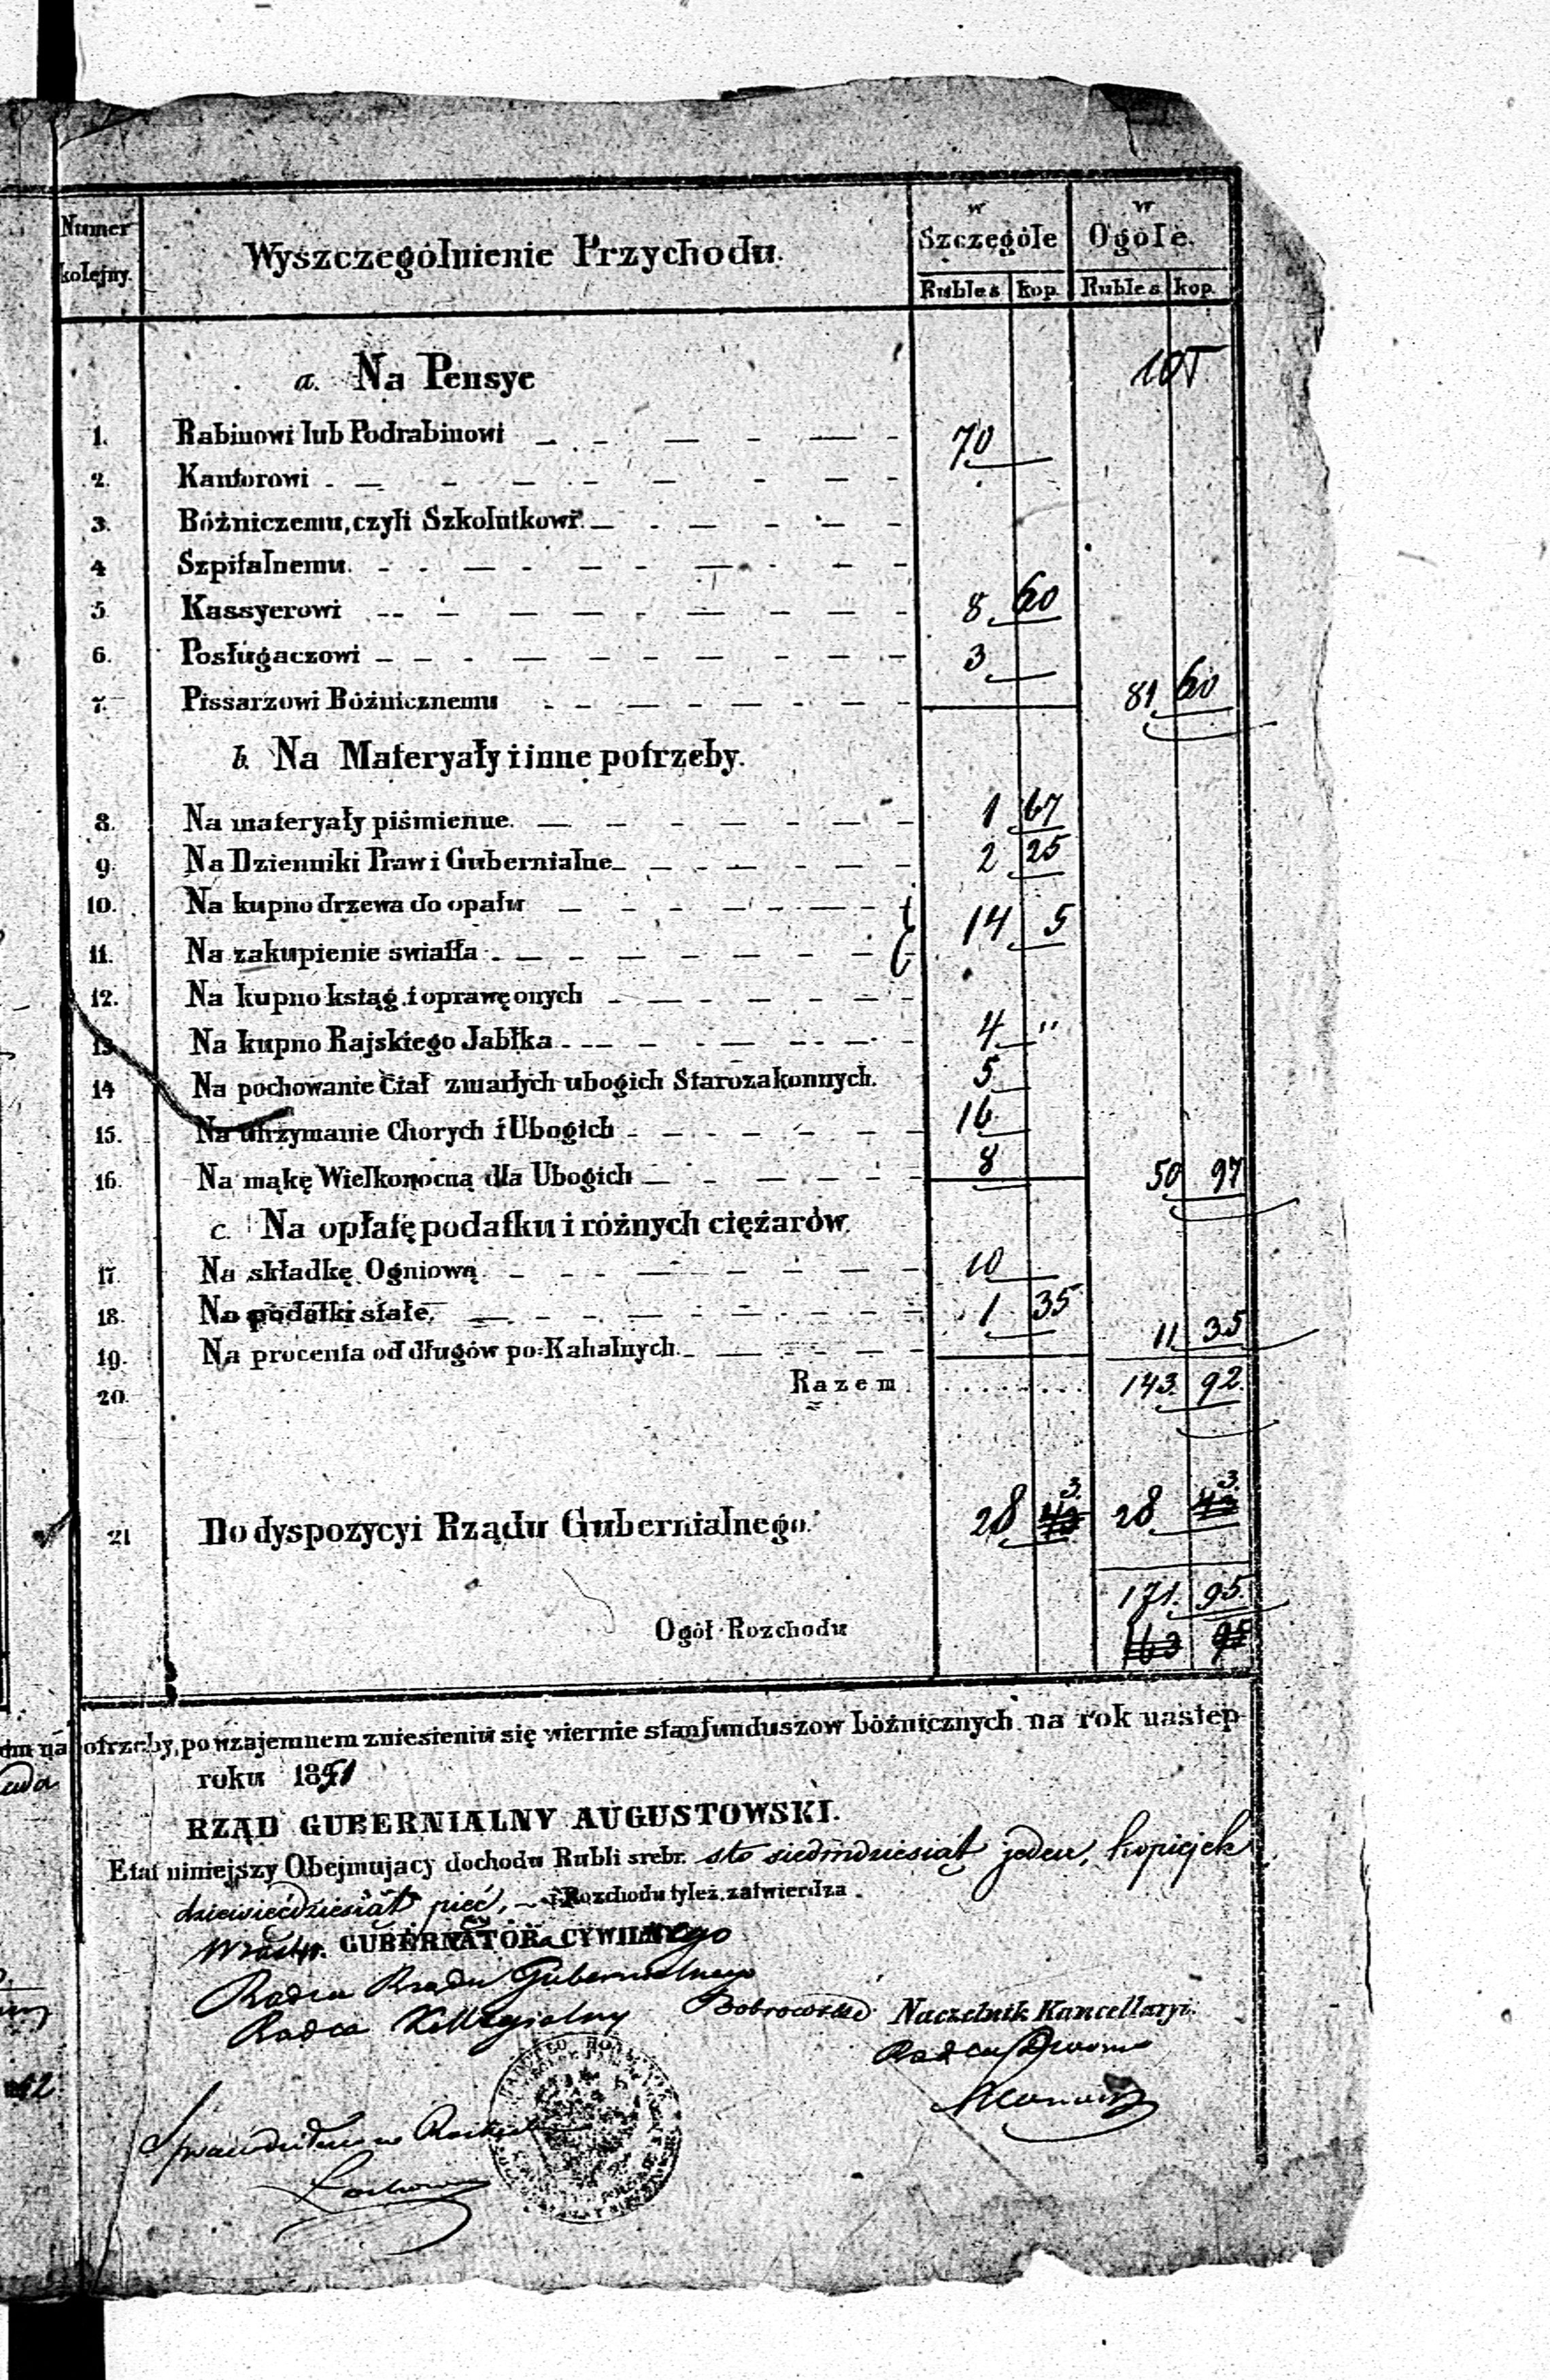 Numer kolejny.
Wyszczególnienie Przychodu.
w Szczególe
w Ogóle.
Rubles kop. Rubles kop.
a. Na Pensye 105
1. Rabinowi lub Podrabinowi 70
2. Kantorowi
3. Bóżniczemu, czyli Szkolnikowi
4 Szpitalnemu.
5 Kassyerowi 8 60
6. Posługaczowi 3
7. Pissarzowi Bóżnicznemu 81 60
b. Na Materyały i inne potrzeby.
8. Na materyały piśmienne. 1 67
9. Na Dzienniki Praw i Gubernialne 2 25
10. Na kupno drzewa do opału
14 5
11. Na zakupienie swiatła
12. Na kupno ksiąg i oprawę onych
13 Na kupno Rajskiego Jabłka 4 "
14 Na pochowanie Ciał zmarłych ubogich Starozakonnych. 5
15. Na utrzymanie Chorych i Ubogich 16
16. Na mąkę Wielkonocną dla Ubogich 8 50 97
c. Na opłatę podatku i różnych ciężarów.
17. Na składkę Ogniową 10
18. Na podatki stałe, 1 35 11 35
19. Na procenta od długów po-Kahalnych.
20. Razem 143. 92.
21 Do dyspozycyi Rządu Gubernialnego. 28 3. 28 3.
171. 95.
Ogół Rozchodu 163 95
potrzeby, po wzajemnem zniesieniu się wiernie stan funduszow bóżnicznych na rok nastep
roku 1851
RZĄD GUBERNIALNY AUGUSTOWSKI.
Etat niniejszy Obejmujący dochodu Rubli srebr. sto siedmdziesiąt jeden, kopiejek
dziewięćdziesiąt pięć, i Rozchodu tyleż zatwierdza.
w zastp. GUBERNATORA CYWILNEgo
Radca Rządu Gubernialnego
Radca Kollegialny Bobrowski
Naczelnik Kancellaryi.
Radca Dworu